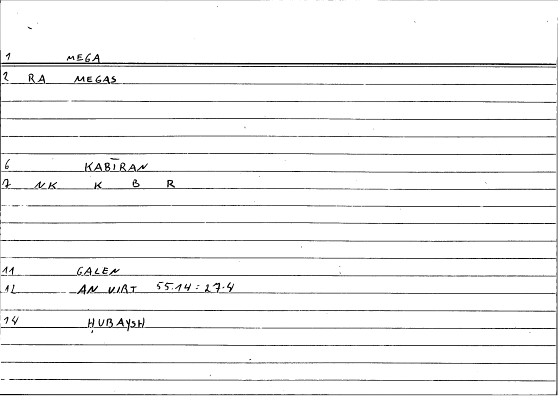 1 MEGA
2 RA MEGAS
6 KABĪRAN
7 NK K B R
11 GALEN
12 AN VIRT 55.14 : 27.4
14 ḤUBAYSH